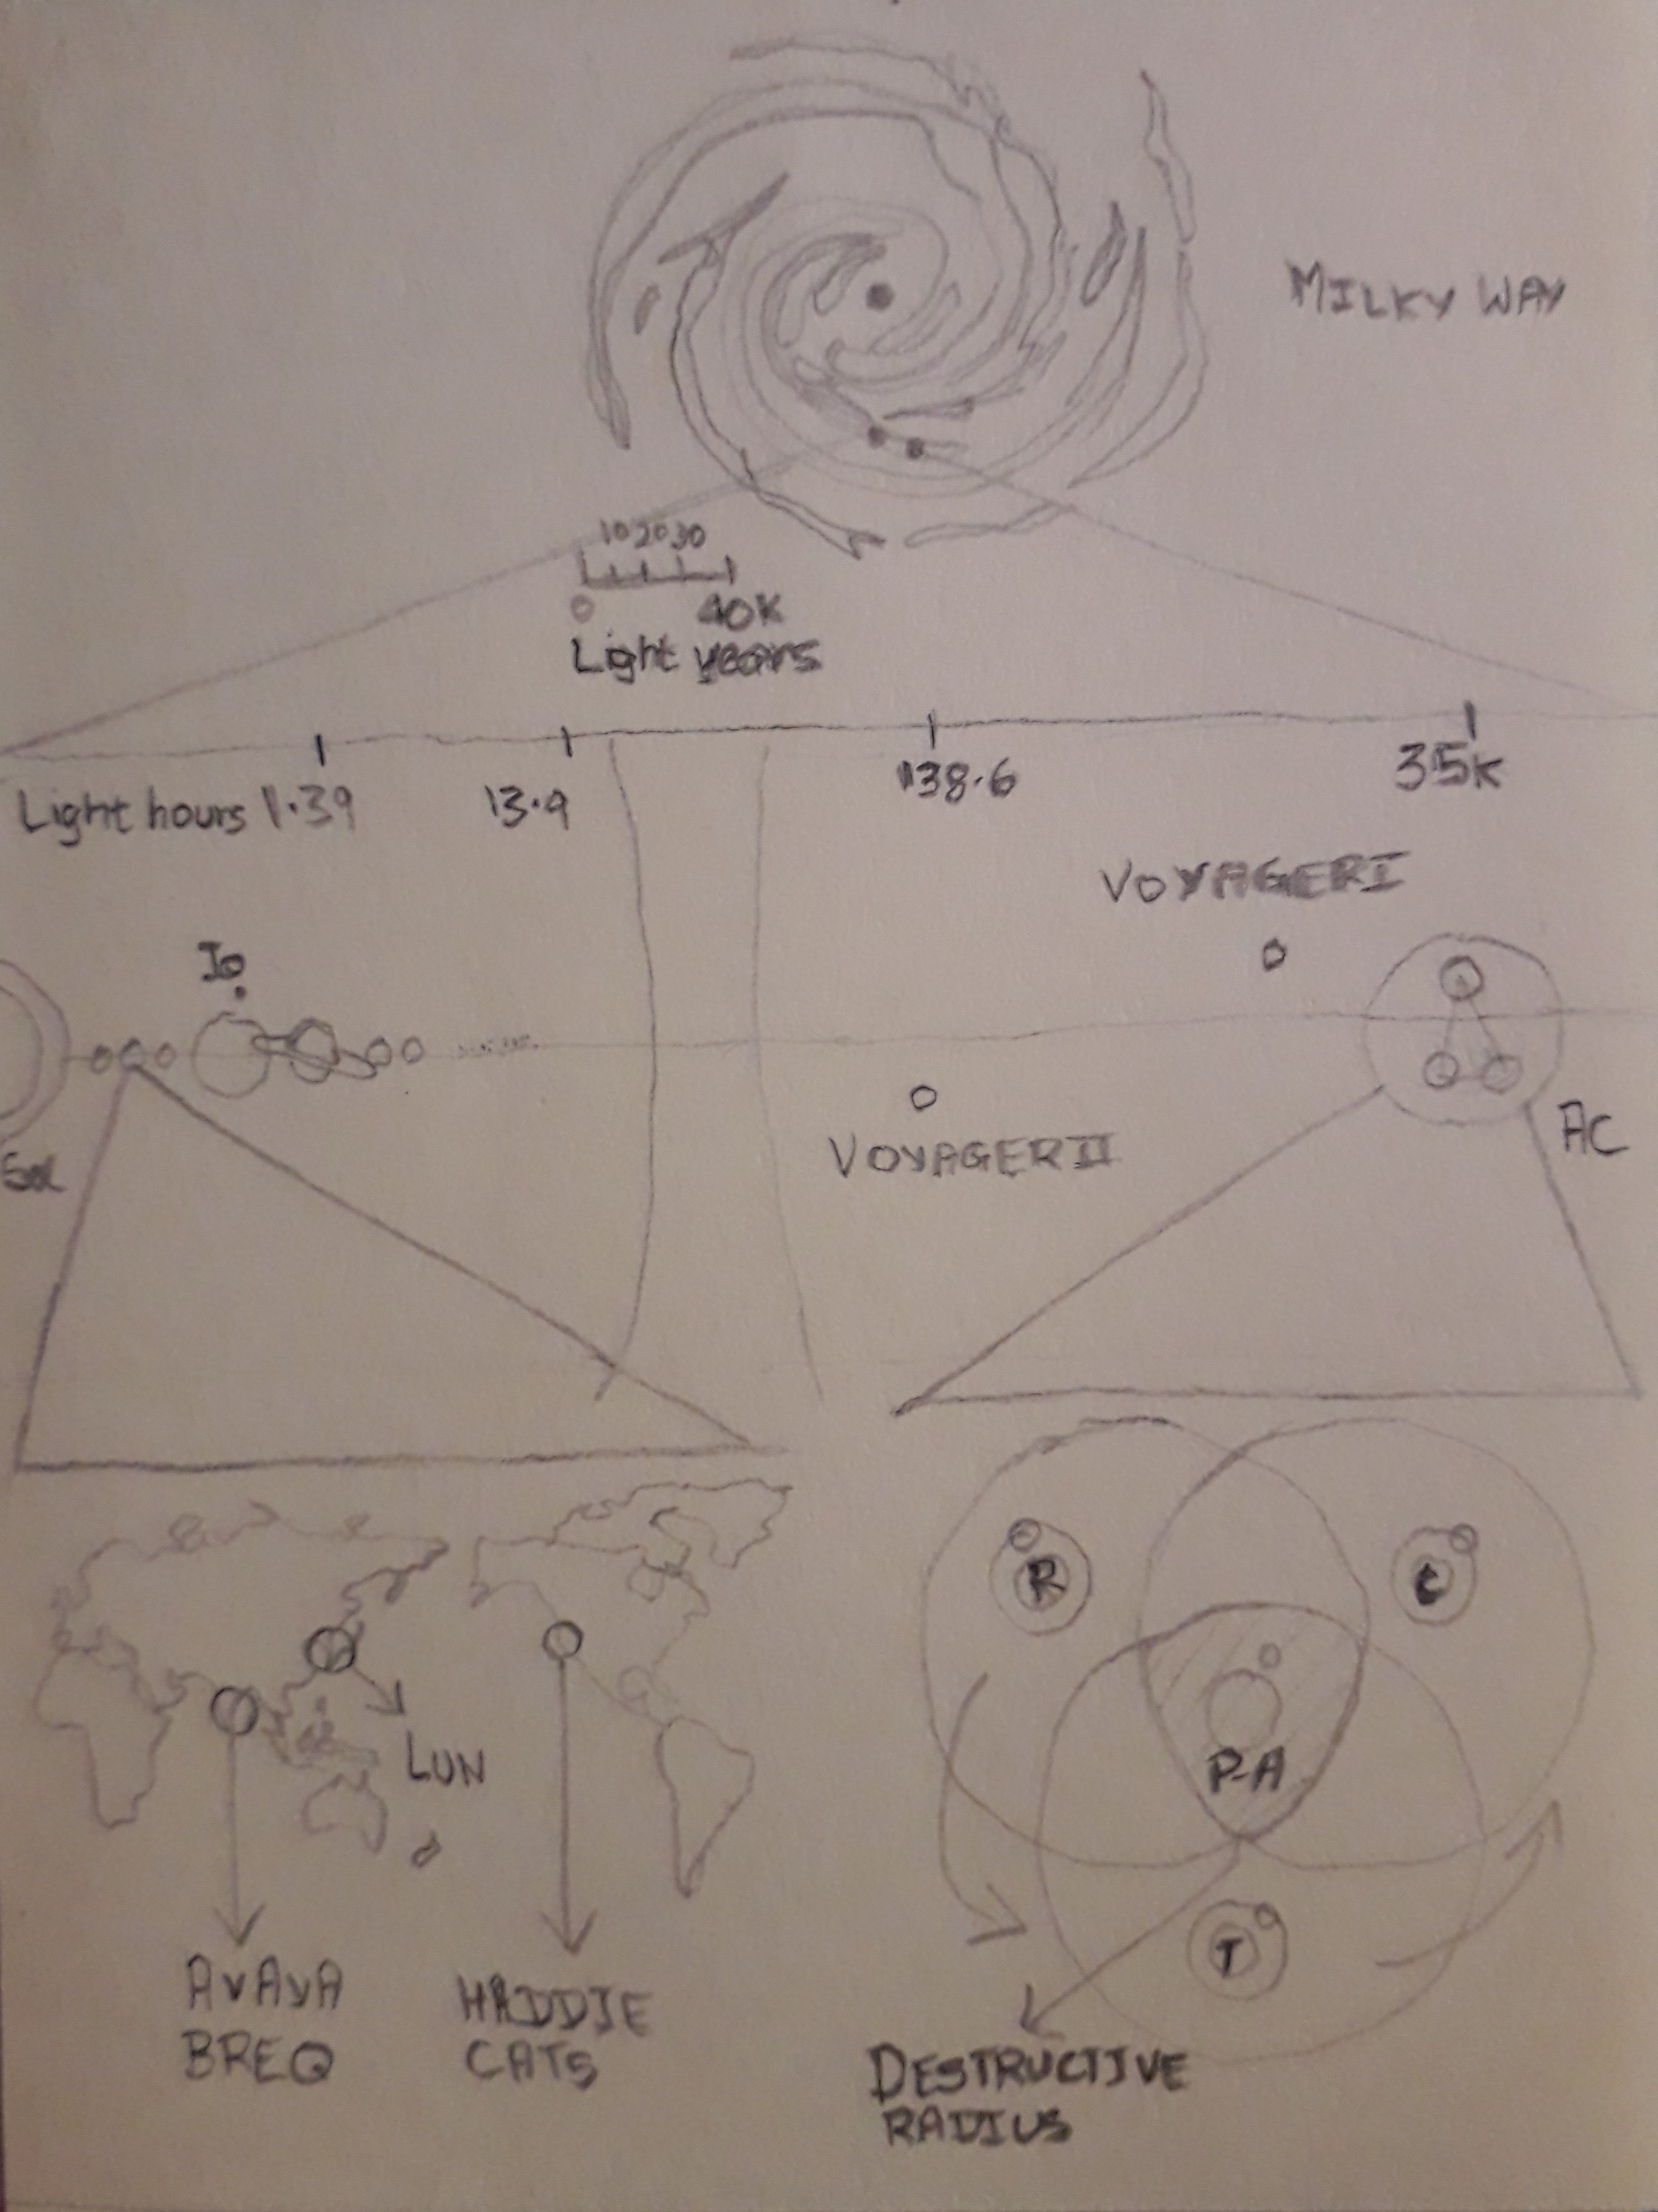 MILKY WAY
10 20 30
0 40K
Light years
Light hours 1.39 13.9 138.6 35K
VOYAGER I
Io
AC
VOYAGER II
Sol
R
C
P-A
LUN
T
AVAVA
BREQ
HADDIE
CATS
DESTRUCTIVE
RADIUS